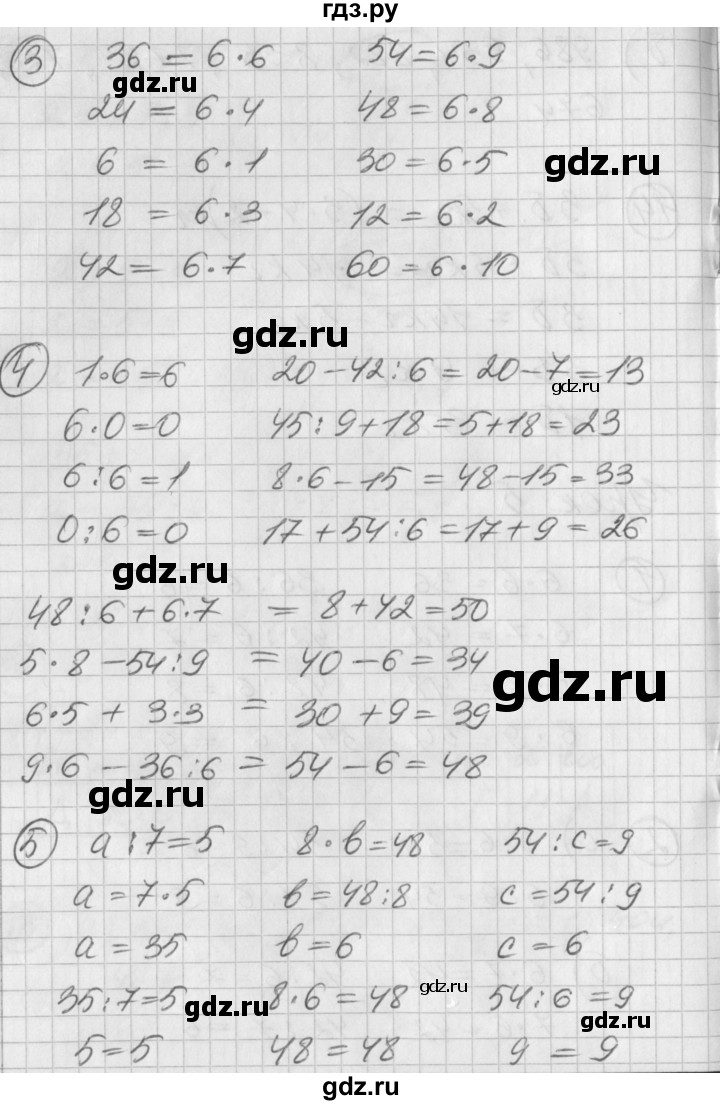 гдз.ру
3 36 = 6·6 54 = 6·9
gdz.ru
24 = 6·4 48 = 6·8
6 = 6·1 30 = 6·5
gdz.ru
18 = 6·3 12 = 6·2
42 = 6·7 60 = 6·10
gdz.ru
4 1·6=6 20-42:6 = 20-7=13
gdz.ru
6·0=0 45:9+18=5+18=23
6:6=1 8·6-15=48-15=33
0:6=0 17+54:6=17+9=26
gdz.ru
48:6+6·7 = 8+42=50
5·8-54:9 = 40-6=34
gdz.ru
6·5+3·3 = 30+9=39
9·6-36:6 = 54-6=48
gdz.ru
5 a:7=5 8·в=48 54:c=9
a=7·5 в=48:8 c=54:9
a=35 в=6 c=6
35:7=5 8·6=48 54:6=9
gdz.ru gdz.ru
gdz.ru
5=5 48=48 9=9
gdz.ru